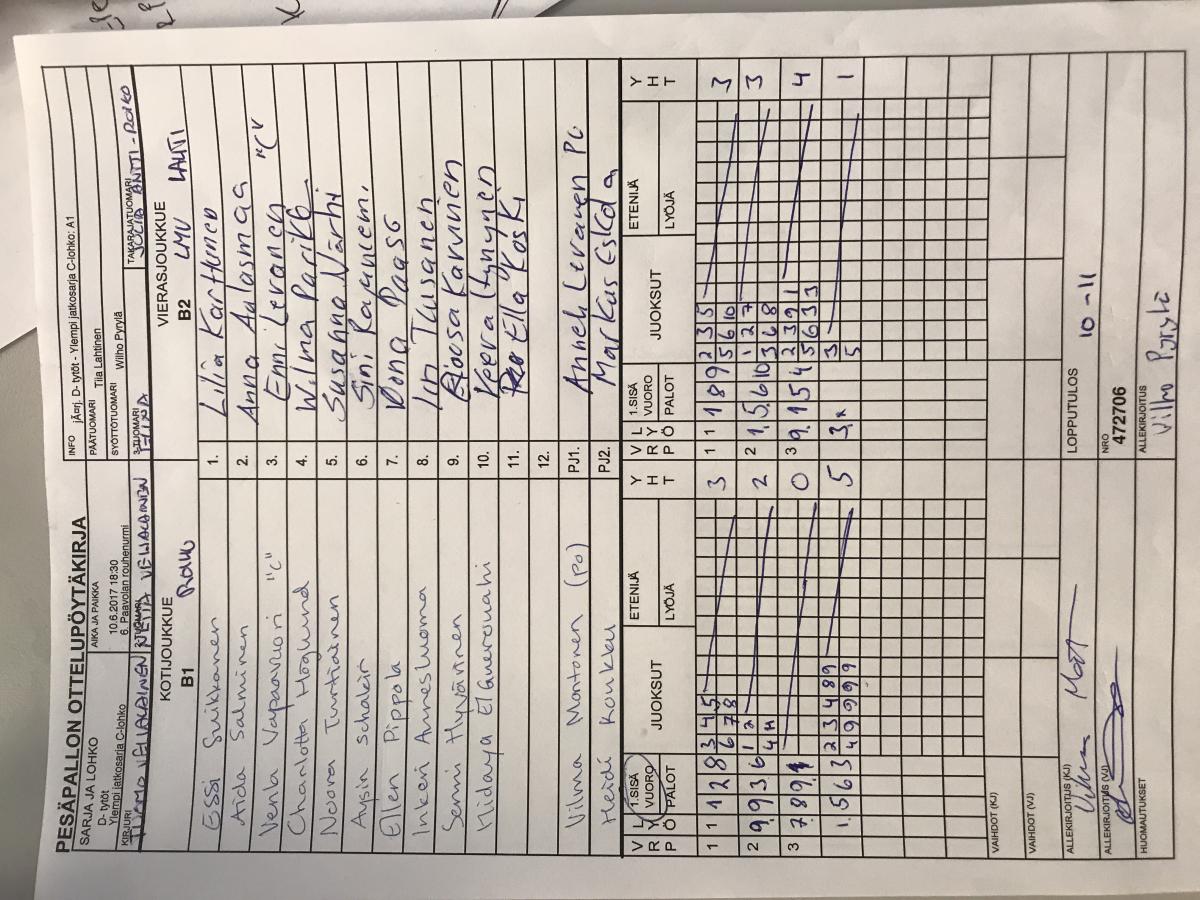 PESÄPALLON OTTELUPÖYTÄKIRJA
SARJA JA LOHKO
D- tytöt
Ylempi jatkosarja C-lohko
AIKA JA PAIKKA
10.6.2017 18:30
6. Paavolan rouhenurmi
INFO jÄ¤rj. D- tytöt - Ylempi jatkosarja C-lohko: A1
PÄÄTUOMARI Tiia Lahtinen
SYÖTTÖTUOMARI Wilho Pyrylä
KIRJURI
2-TUOMARI
3-TUOMARI
TAKARAJATUOMARI
KOTIJOUKKUE
B1
VIERASJOUKKUE
B2 LMV LAHTI
Essi Suikkanen 1. Lilia Karttunen
Aida Salminen 2. Anna Aulasmaa
Venla Vapaavuori "C" 3. Enni Levanen "C"
Charlotta Höglund 4. Wilma Parikka
Noora Turtiainen 5. Susanna Närhi
Aysin Schakir 6. Sini
Ellen Pippola 7. Rona Paaso
Inkeri Annesluoma 8. Iin Tuusanen
Senni Hyvärinen 9. Karvinen
Hidaya 10. Veera Hynynen
11. Ella Koski
12.
Vilma Montonen (PO) PJ1. Anneli Levanen PO
Heidi Koukku PJ2. Markus Eskola
VRY LYÖ 1.SISÄVUORO PALOT JUOKSUT ETENIJÄ LYÖJÄ YHT VRY LYÖ 1.SISÄVUORO PALOT JUOKSUT ETENIJÄ LYÖJÄ YHT
1 1 1 2 8 3 4 5 3 1 1 1 8 9 2 3 5 3
6 7 8 5 6 10
2 9. 9 3 6 1 2 2 2 1. 5. 6 10 1 2 7 3
4 3 6 8
3 7. 8 9 0 3 9. 1 5 4 2 3 9 1 4
5 6 3 3
1. 5 6 3 2 3 4 8 9 5 3. 3 1
4 9 9 9 9 5
VAIHDOT (KJ)
VAIHDOT (VJ)
ALLEKIRJOITUS (KJ)
LOPPUTULOS 10-11
ALLEKIRJOITUS (VJ)
NRO
472706
HUOMAUTUKSET
ALLEKIRJOITUS
Vilho Pyrylä